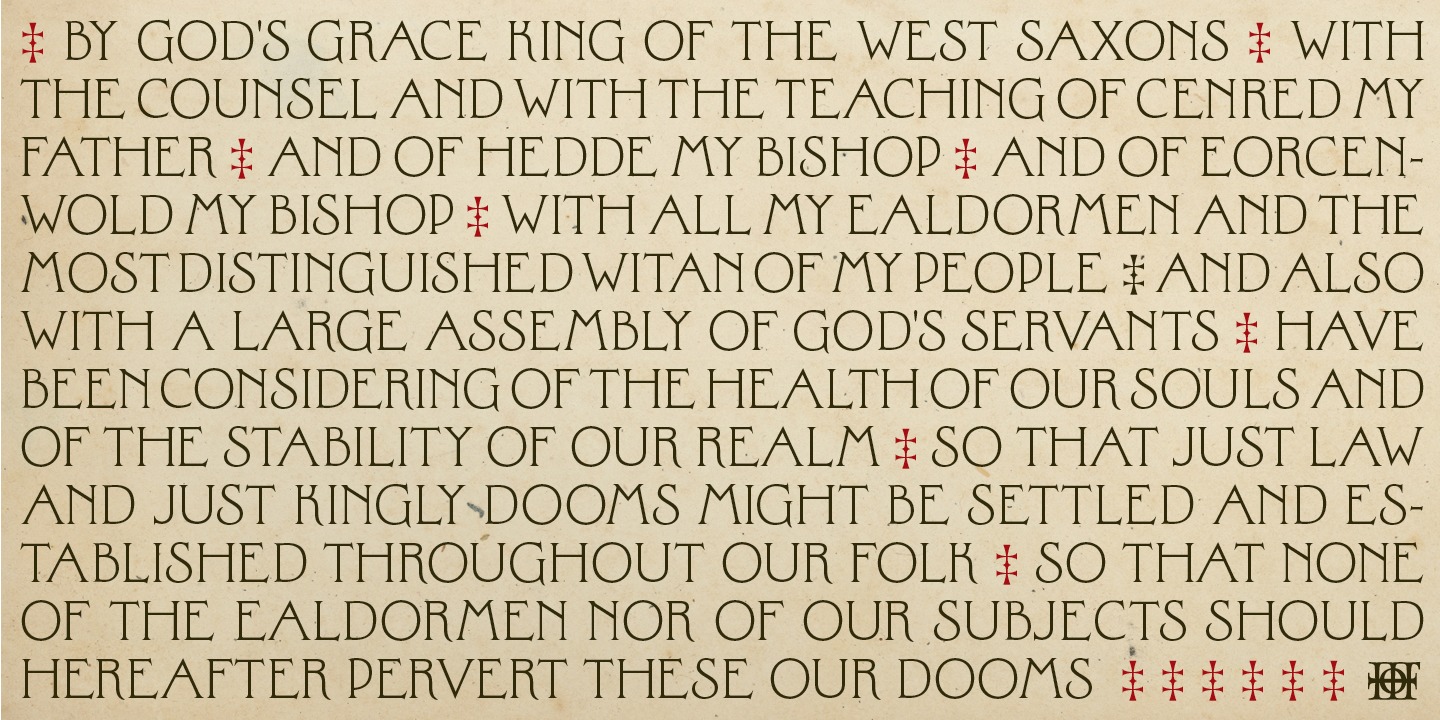 ‡ BY GOD'S GRACE KING OF THE WEST SAXONS ‡ WITH
THE COUNSEL AND WITH THE TEACHING OF CENRED MY
FATHER ‡ AND OF HEDDE MY BISHOP ‡ AND OF EORCEN-
WOLD MY BISHOP ‡ WITH ALL MY EALDORMEN AND THE
MOST DISTINGUISHED WITAN OF MY PEOPLE ‡ AND ALSO
WITH A LARGE ASSEMBLY OF GOD'S SERVANTS ‡ HAVE
BEEN CONSIDERING OF THE HEALTH OF OUR SOULS AND
OF THE STABILITY OF OUR REALM ‡ SO THAT JUST LAW
AND JUST KINGLY DOOMS MIGHT BE SETTLED AND ES-
TABLISHED THROUGHOUT OUR FOLK ‡ SO THAT NONE
OF THE EALDORMEN NOR OF OUR SUBJECTS SHOULD
HEREAFTER PERVERT THESE OUR DOOMS ‡ ‡ ‡ ‡ ‡ ‡